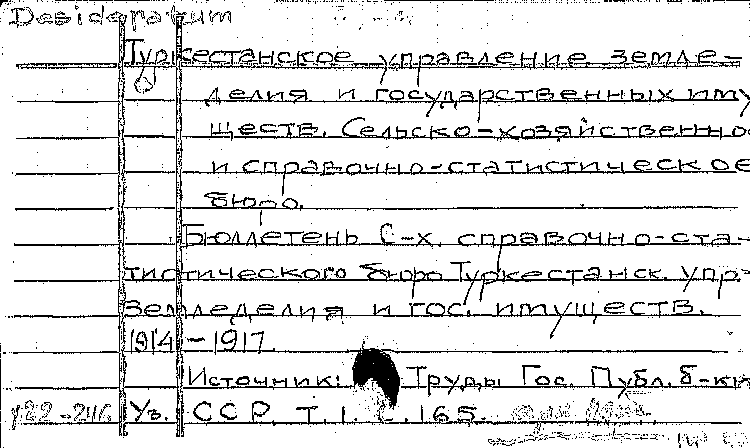 Desideratum
Туркестанское управление земле-
делия и государственных иму
ществ. Сельско-хозяйственно
и справочно-статистическое
бюро.
Бюллетень С-х. справочно-ста-
тистического бюро Туркестанск. упр.
земледелия и гос. имуществ.
1914-1917.
Источник: Труды Гос. Публ. б-ки
Уз. ССР. Т. I. С. 165.